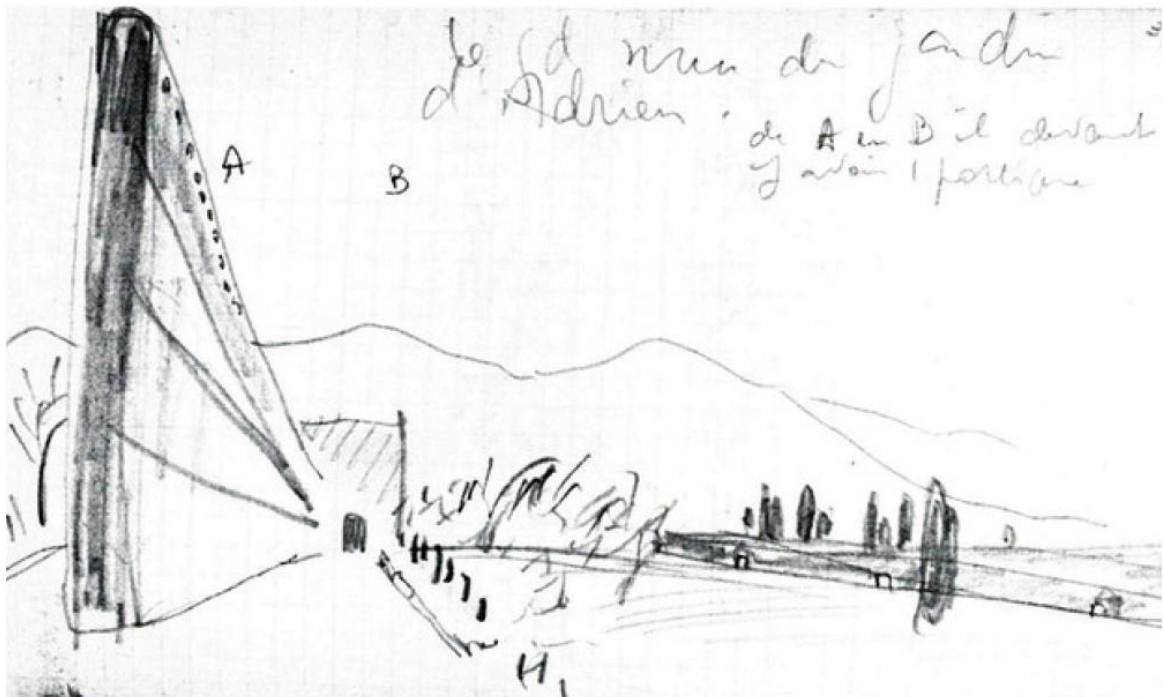 le gd mur du jardin
d'Adrien.
de A en B il devait
y avoir 1 portique
A
B
H